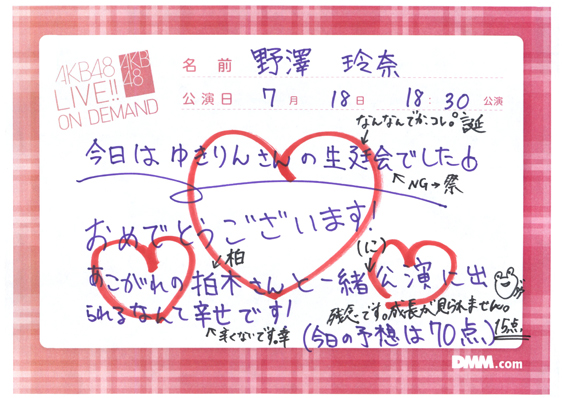 AKB48
LIVE!!
ON DEMAND
AKB
48
名前 野澤 玲奈
公演日 7月 18日 18:30 公演
なんなんでかコレ。誕
今日は ゆきりんさんの生廷会でした
NG→祭
おめでとうございます!
柏
(に)
あこがれの柏木さんと一緒公演に出
られるなんて幸せです!
残念です。成長が見られません。
すくないです。幸
(今日の予想は70点)
15点
DMM.com